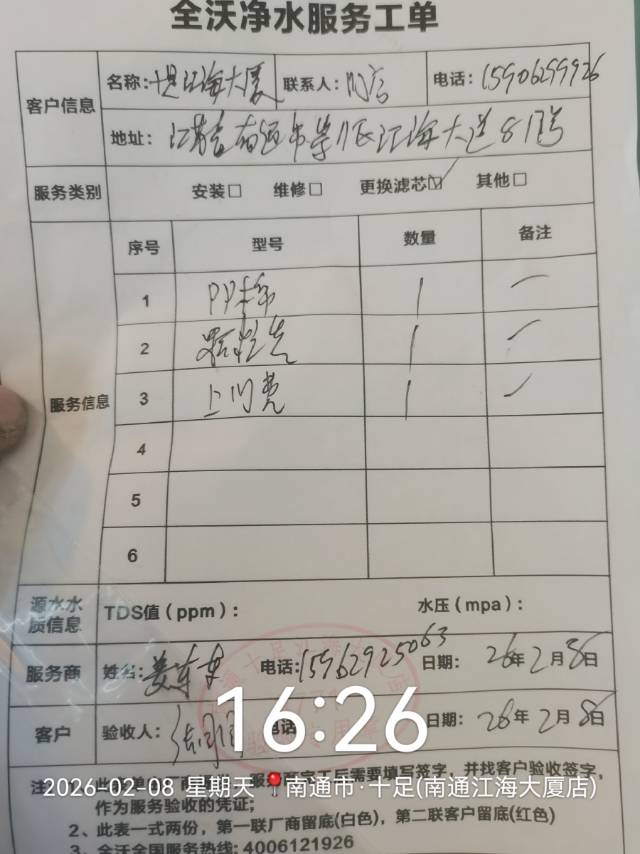 全沃净水服务工单
客户信息
名称: 十足江海大厦 联系人: 门店 电话: 15906299926
地址: 江苏省南通市崇川区江海大道81号
服务类别 安装□ 维修□ 更换滤芯☑ 其他□
服务信息
序号 型号 数量 备注
1 PP棉 1 —
2 颗粒炭 1 —
3 上门费 1 —
4
5
6
源水水质信息 TDS值(ppm): 水压(mpa):
服务商 姓名: 电话: 15962925063 日期: 26年2月8日
客户 验收人: 电话 日期: 26年2月8日
16:26
2026-02-08 星期天 南通市·十足(南通江海大厦店)
需要填写签字,并找客户验收签字,
作为服务验收的凭证;
2、此表一式两份,第一联厂商留底(白色),第二联客户留底(红色)
3、全沃全国服务热线: 4006121926